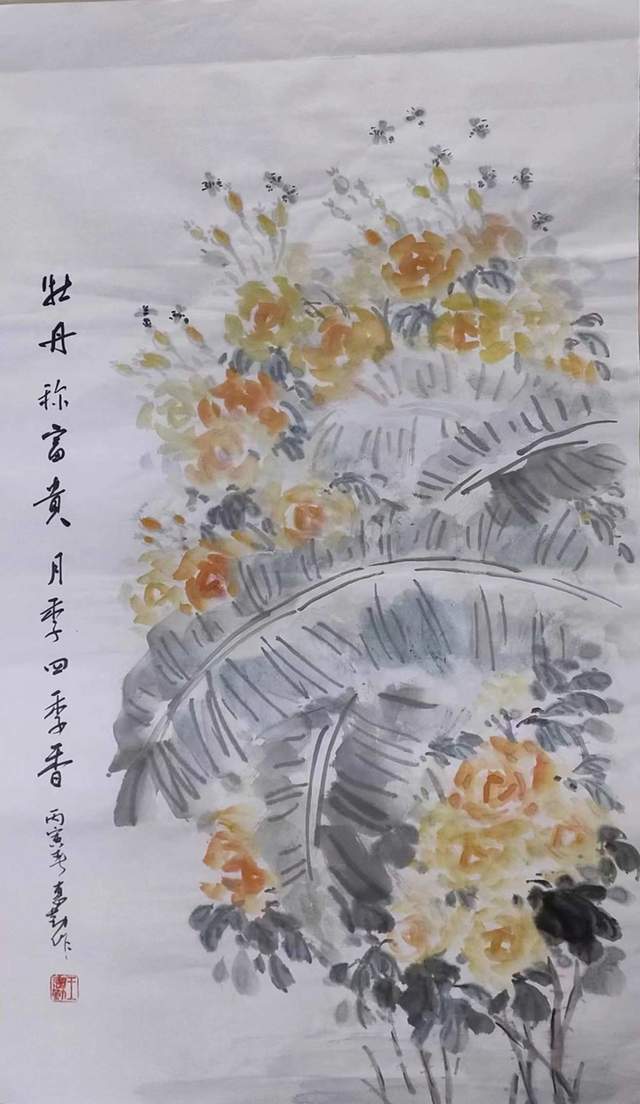 牡丹称富貴 月季四季香
丙寅春 作